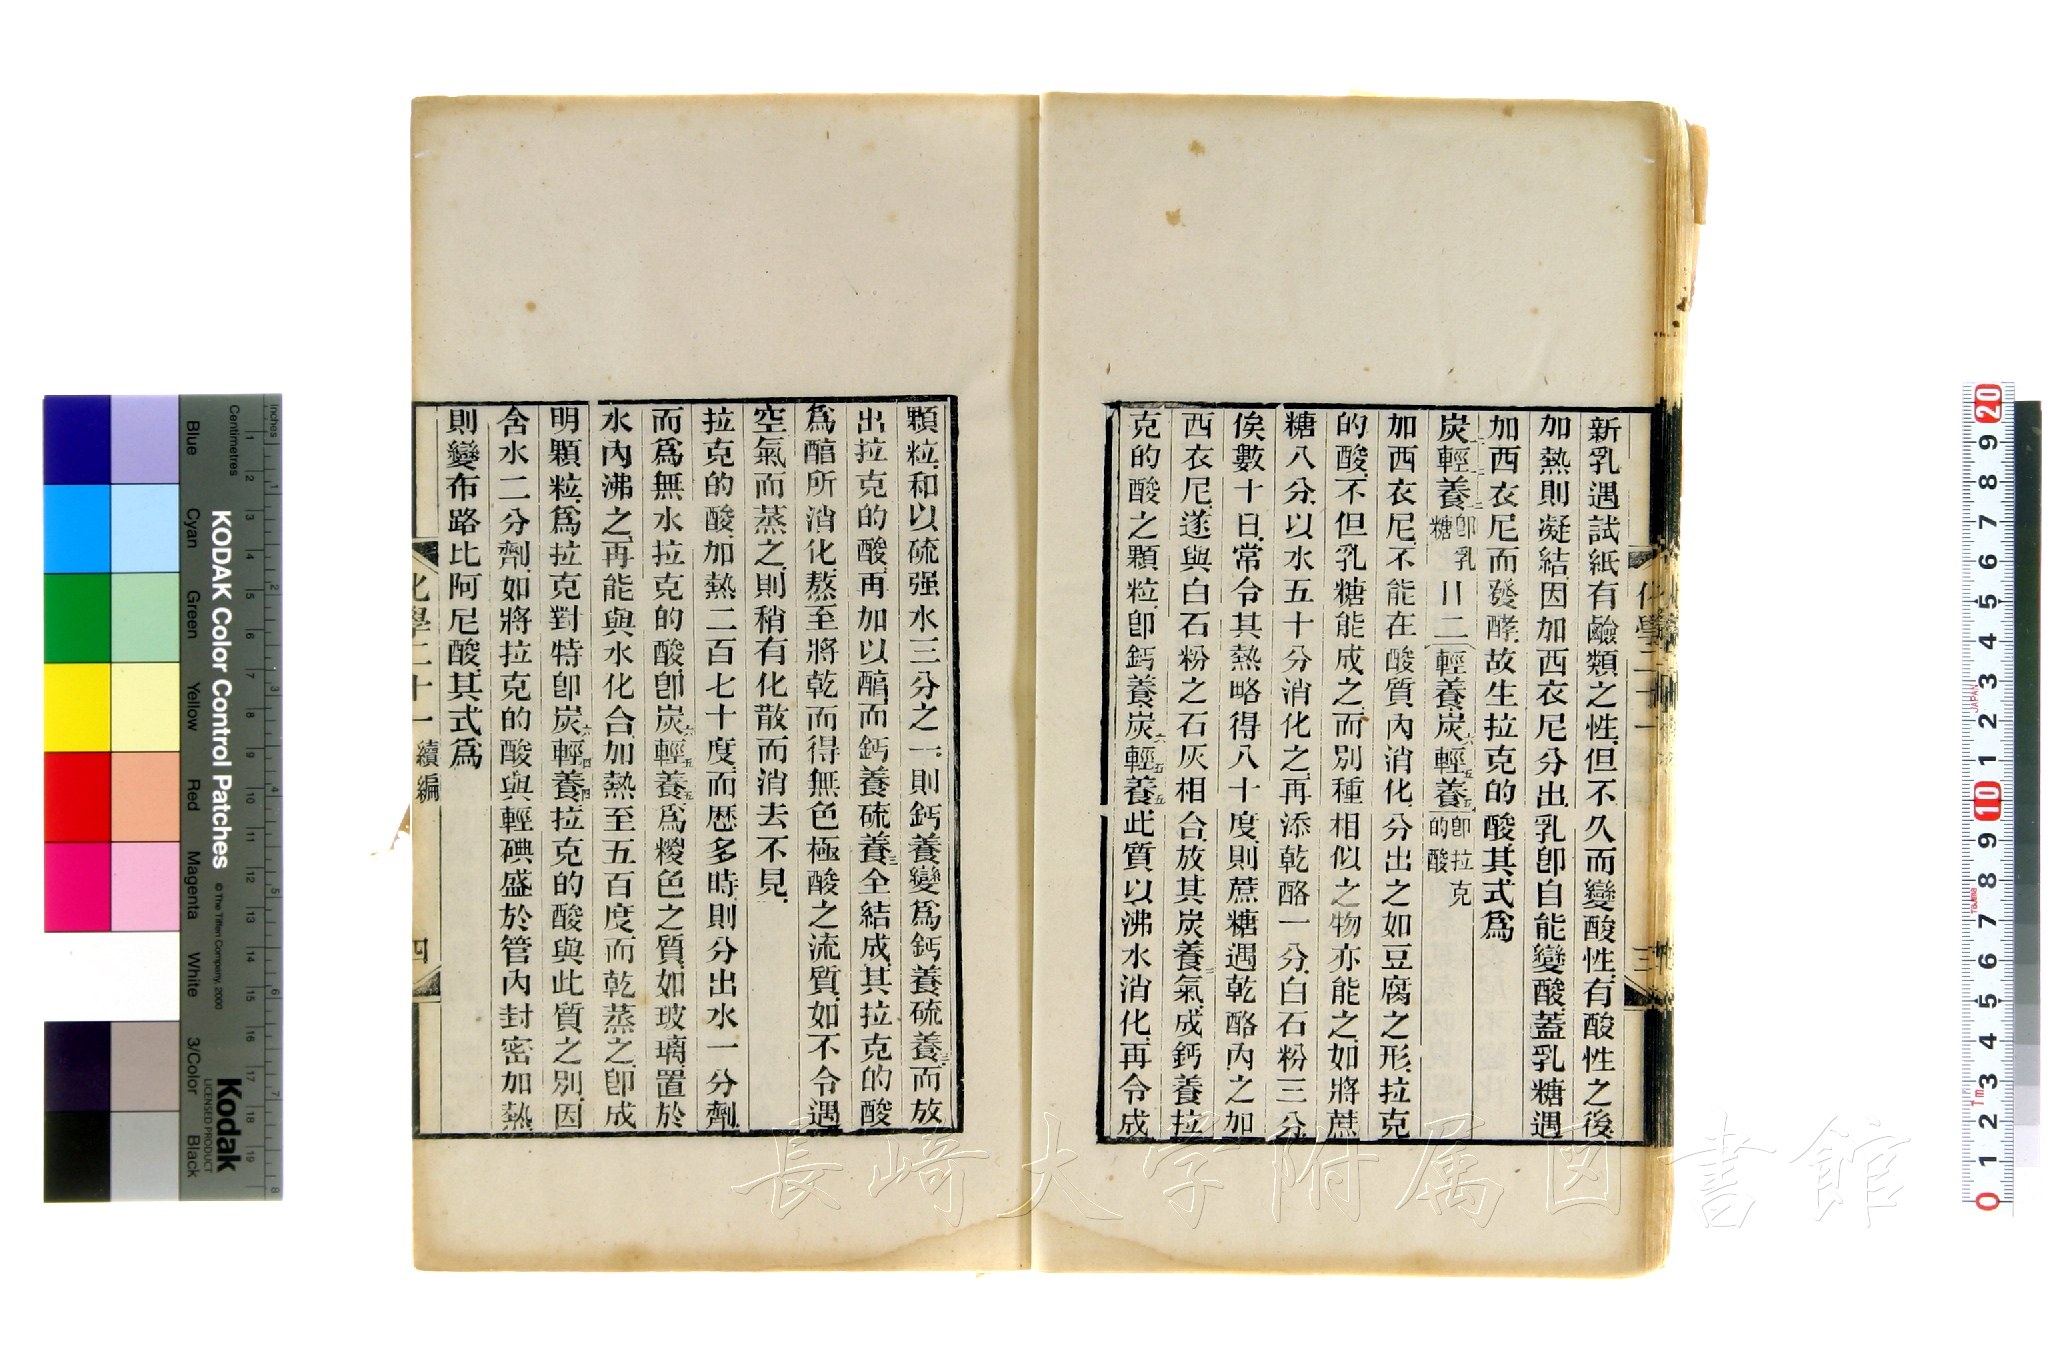 新乳遇試紙有鹼類之性、但不久而變酸性、有酸性之後
加熱則凝結、因加西衣尼分出、乳卽自能變酸、蓋乳糖遇
加西衣尼而發酵、故生拉克的酸、其式爲
炭輕養卽乳糖〣二(輕養、炭六輕五養五)卽拉克的酸
加西衣尼、不能在酸質內消化、分出之如豆腐之形、拉克
的酸、不但乳糖能成之、而別種相似之物亦能之、如將蔗
糖八分、以水五十分消化之、再添乾酪一分、白石粉三分
俟數十日、常令其熱略得八十度、則蔗糖遇乾酪內之加
西衣尼、遂與白石粉之石灰相合、放其炭養二氣、成鈣養拉
克的酸之顆粒、卽鈣養炭六輕五養五、此質以沸水消化、再令成
化學二十一
三
顆粒、和以硫强水三分之一、則鈣養變爲鈣養硫養三、而放
出拉克的酸、再加以醕、而鈣養硫養三全結成、其拉克的酸
爲醕所消化、熬至將乾而得無色極酸之流質、如不令遇
空氣而蒸之、則稍有化散而消去不見、
拉克的酸、加熱二百七十度、而歷多時、則分出水一分劑、
而爲無水拉克的酸、卽炭六輕五養五、爲椶色之質、如玻璃、置於
水內沸之、再能與水化合、加熱至五百度、而乾蒸之、卽成
明顆粒、爲拉克對特、卽炭六輕四養四、拉克的酸與此質之別、因
含水二分劑、如將拉克的酸與輕碘盛於管內封密加熱
則變布路比阿尼酸、其式爲
化學二十一 續編
四
長崎大学附属図書館
KODAK Color Control Patches
© The Tiffen Company, 2000
Kodak
LICENSED PRODUCT
Inches
Centimetres
Blue
Cyan
Green
Yellow
Red
Magenta
White
3/Color
Black